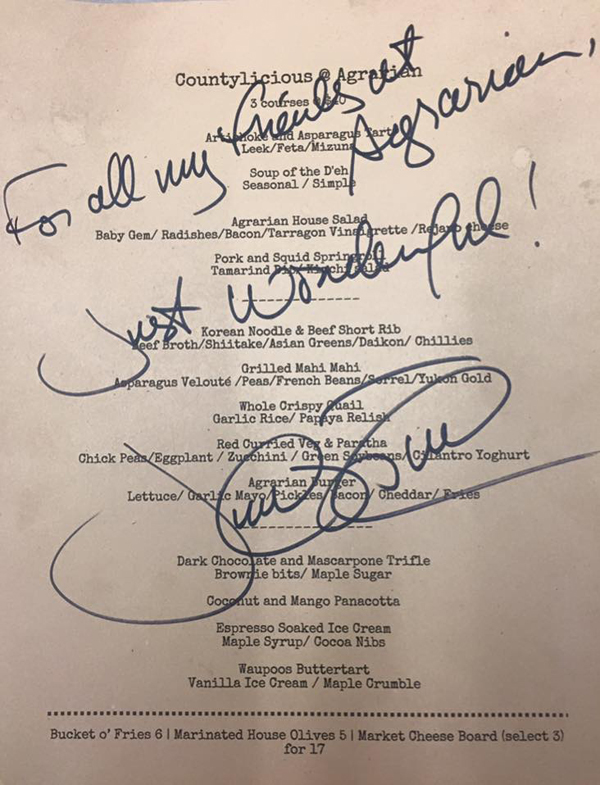 Countylicious @ Agrarian
3 courses @ $40
Artichoke and Asparagus Tart
Leek/Feta/Mizuna
Soup of the D'eh
Seasonal / Simple
Agrarian House Salad
Baby Gem/ Radishes/Bacon/Tarragon Vinaigrette /Rejano cheese
Pork and Squid Springroll
Tamarind Dip/ Kimchi Salad
Korean Noodle & Beef Short Rib
Beef Broth/Shiitake/Asian Greens/Daikon/ Chillies
Grilled Mahi Mahi
Asparagus Velouté /Peas/French Beans/Sorrel/Yukon Gold
Whole Crispy Quail
Garlic Rice/ Papaya Relish
Red Curried Veg & Paratha
Chick Peas/Eggplant / Zucchini / Green Soybeans/ Cilantro Yoghurt
Agrarian Burger
Lettuce/ Garlic Mayo/Pickles/Bacon/ Cheddar/ Fries
Dark Chocolate and Mascarpone Trifle
Brownie bits/ Maple Sugar
Coconut and Mango Panacotta
Espresso Soaked Ice Cream
Maple Syrup/ Cocoa Nibs
Waupoos Buttertart
Vanilla Ice Cream / Maple Crumble
Bucket o' Fries 6 | Marinated House Olives 5 | Market Cheese Board (select 3)
for 17
For all my friends at
Agrarian,
Just Wonderful!